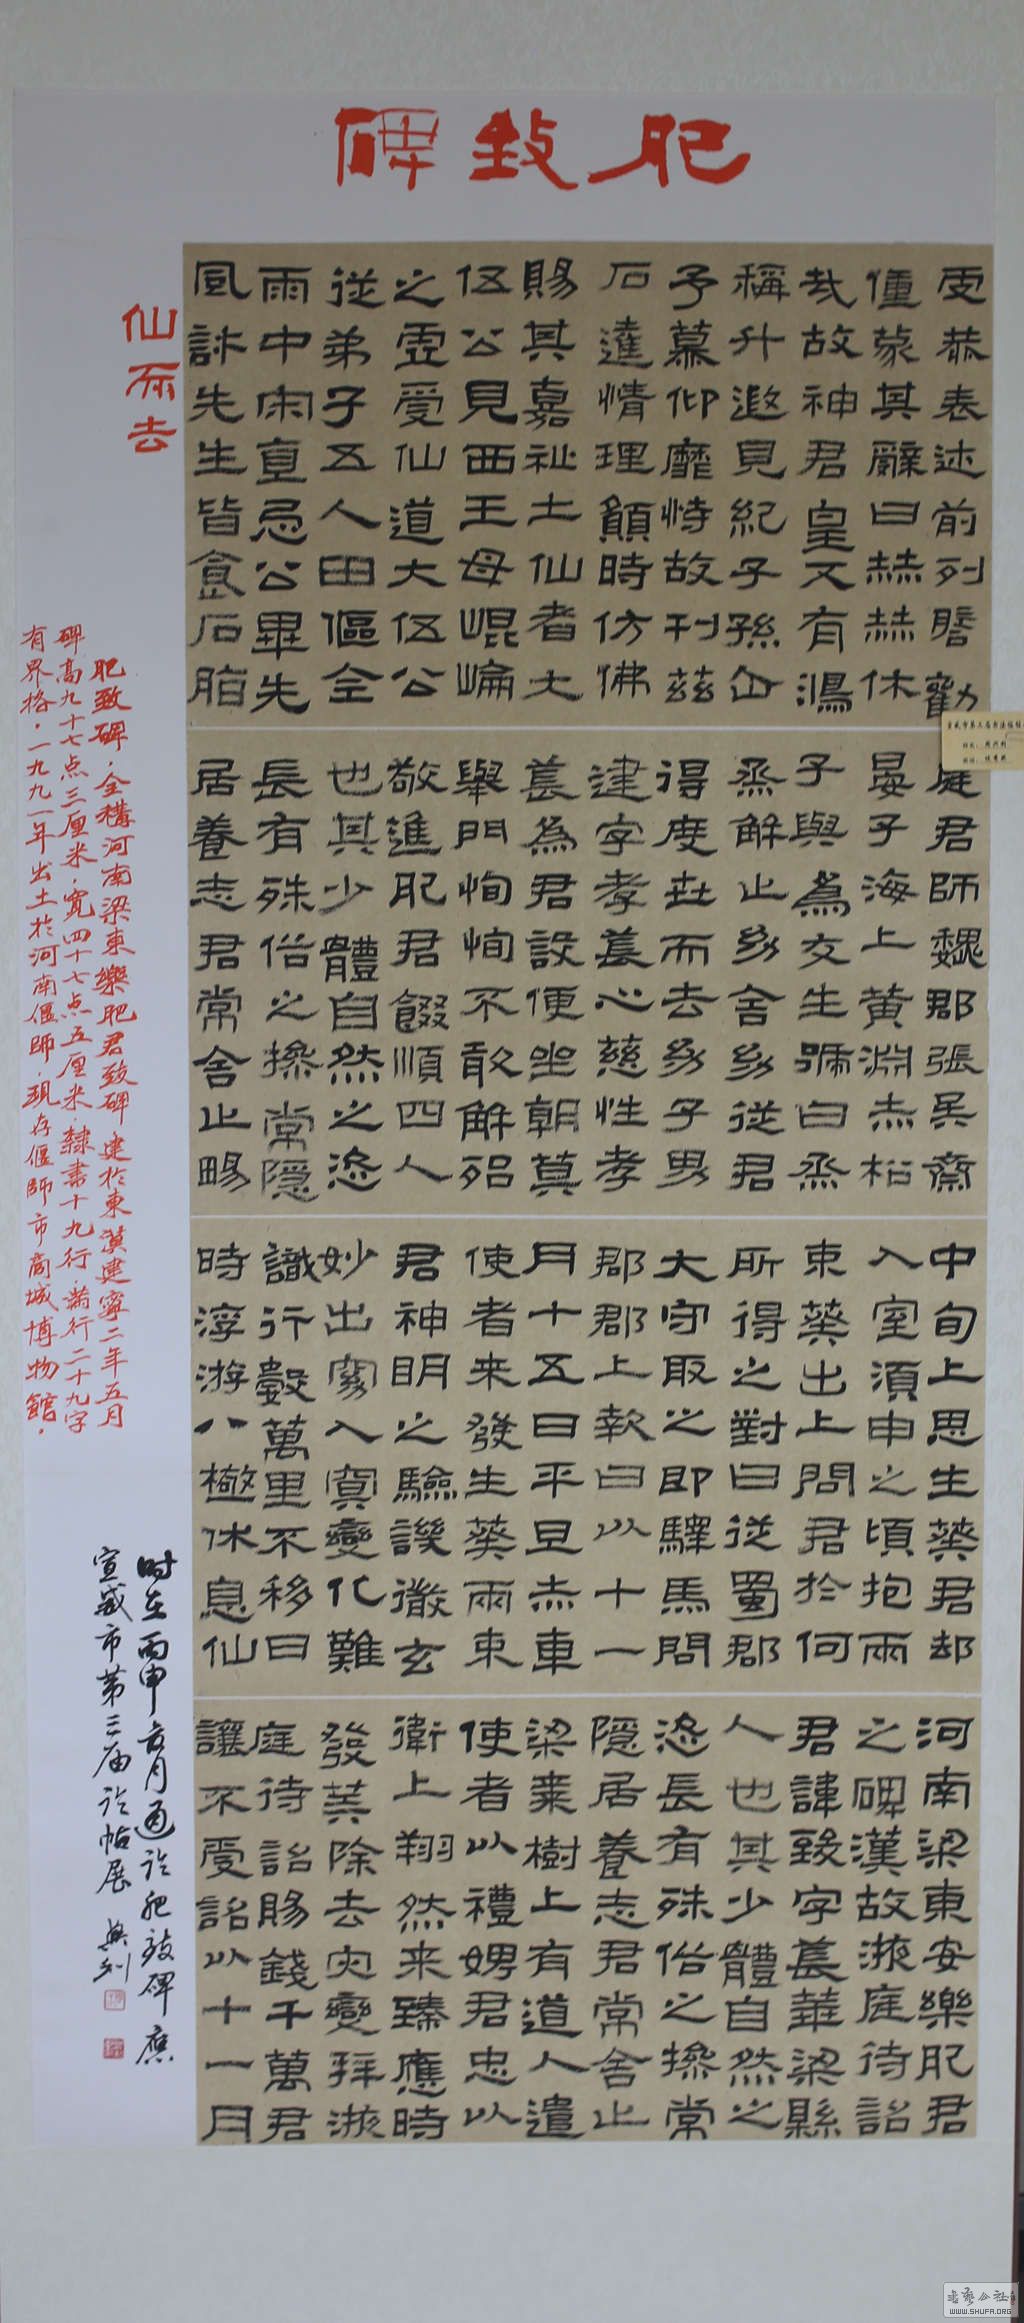 肥致碑
河南梁東安樂肥君
之碑漢故掖庭待詔
君諱致字萇華梁縣
人也其少體自然之
恣長有殊俗之操常
隱居養志君常舍止
梁棗樹上有道人遣
使者以禮娉君忠以
衛上翔然来臻應時
發其除去灾變拜掖
庭待詔賜錢千萬君
讓不受詔以十一月
中旬上思生葵君却
入室須申之頃抱兩
束葵出上問君於何
所得之對曰從蜀郡
大守取之即驛馬問
郡郡上報曰以十一
月十五日平旦赤車
使者来發生葵兩束
君神明之驗譏徹玄
妙出窈入冥變化難
識行數萬里不移日
時浮游八極休息仙
庭君師魏郡張吴齋
晏子海上黄淵赤松
子與為友生號曰烝
烝解止幼舍幼從君
得度世而去幼子男
建字孝萇心慈性孝
萇為君設便坐朝莫
舉門恂恂不敢解殆
敬進肥君餟順四人
也其少體自然之恣
長有殊俗之操常隱
居養志君常舍止賜
受恭表述前列啓勸
僮蒙其辭曰赫赫休
哉故神君皇又有鴻
稱升遐見紀子孫企
予慕仰靡恃故刊兹
石達情理願時仿佛
賜其嘉祉土仙者大
伍公見西王母崐崘
之虛受仙道大伍公
從弟子五人田傴全
雨中宋直忌公畢先
風許先生皆食石脂
仙而去
肥致碑,全稱河南梁東樂肥君致碑建於東漢建寧二年五月
碑高九十七点三厘米,寬四十七点五厘米,隸書十九行,滿行二十九字
有界格,一九九一年出土於河南偃師,現存偃師市商城博物館。
时在丙申六月通临肥致碑應
宣威市第三届临帖展 興利
WWW.SHUFA.ORG